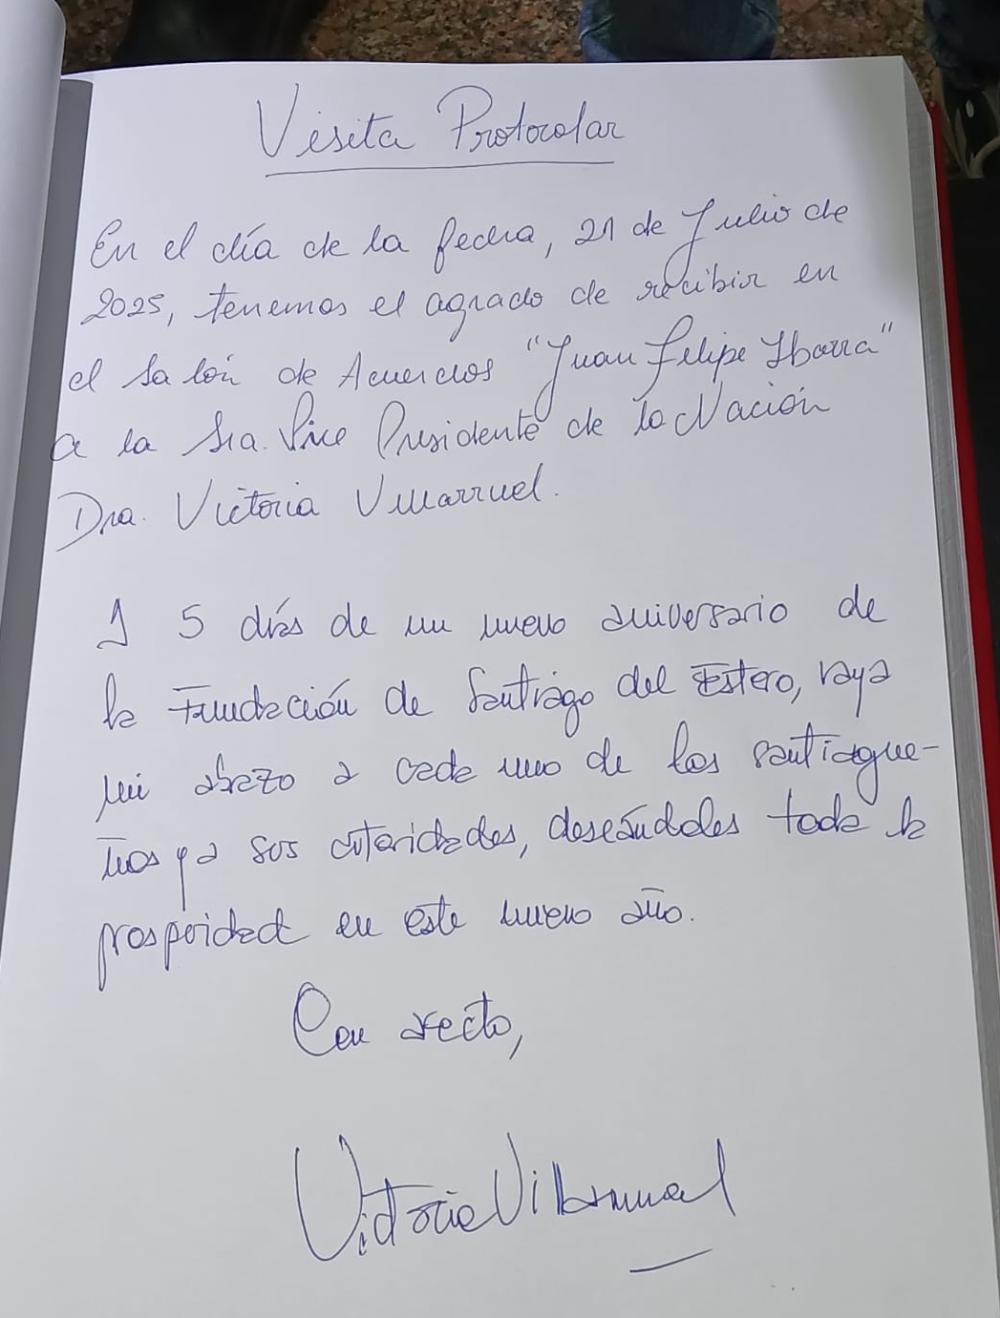 Visita Protocolar
En el día de la fecha, 21 de Julio de
2025, tenemos el agrado de recibir en
el Salón de Acuerdos "Juan Felipe Ibarra"
a la Sra. Vice Presidente de la Nación
Dra. Victoria Villarruel.
A 5 días de un nuevo aniversario de
la Fundación de Santiago del Estero, vaya
mi abrazo a cada uno de los santiague-
ños y a sus autoridades, deseándoles toda la
prosperidad en este nuevo año.
Con afecto,
Victoria Villarruel